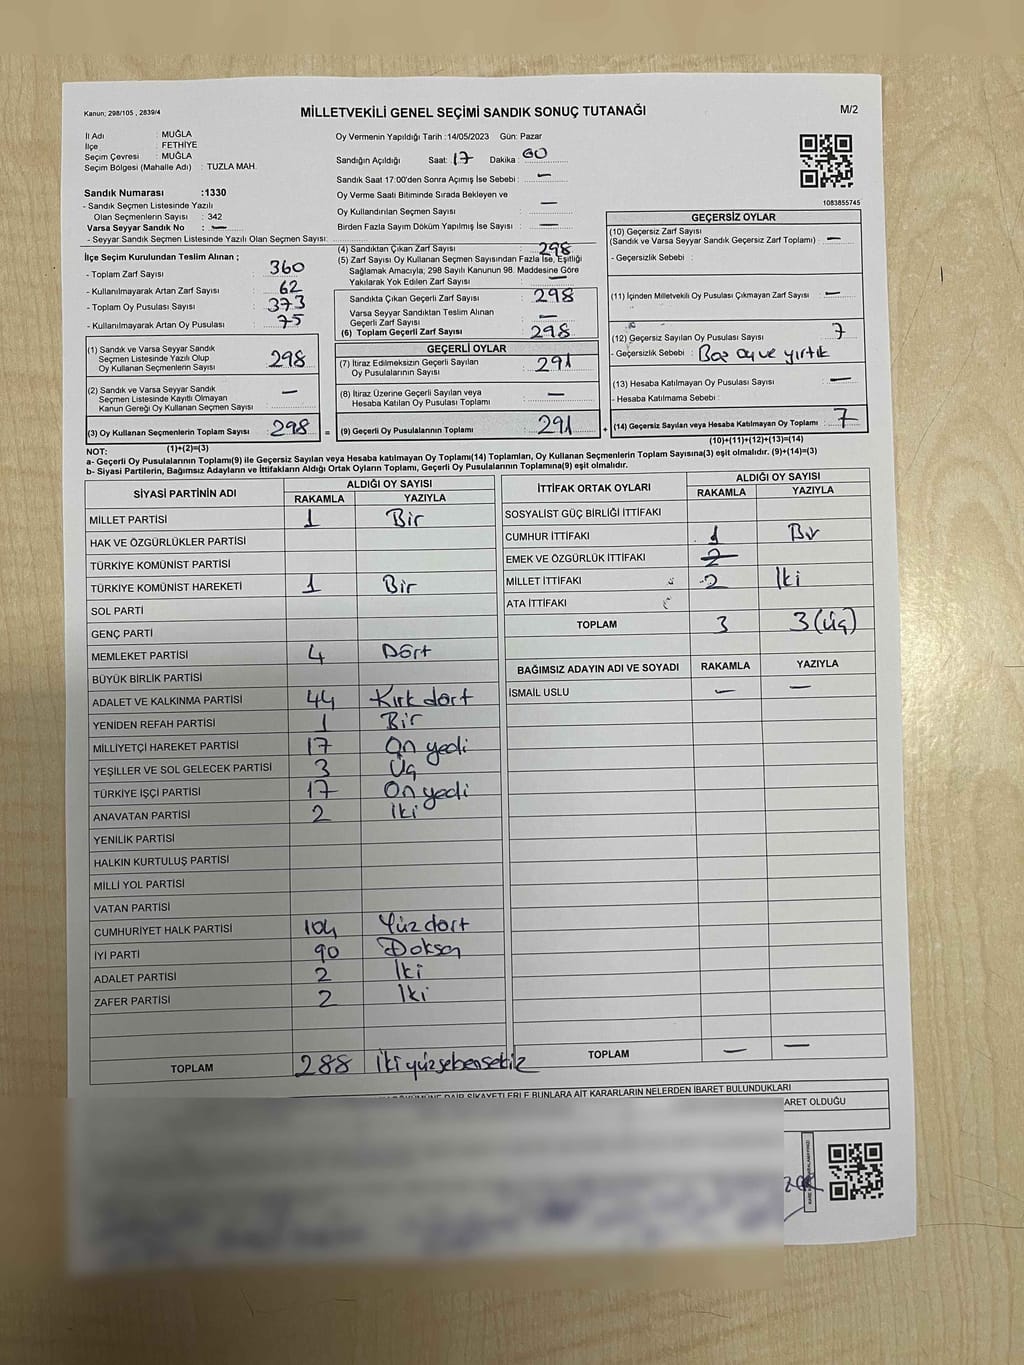 Kanun; 298/105 , 2839/4
MİLLETVEKİLİ GENEL SEÇİMİ SANDIK SONUÇ TUTANAĞI
M/2
İl Adı : MUĞLA
İlçe : FETHİYE
Seçim Çevresi : MUĞLA
Seçim Bölgesi (Mahalle Adı) : TUZLA MAH.
Sandık Numarası :1330
- Sandık Seçmen Listesinde Yazılı
Olan Seçmenlerin Sayısı : 342
Varsa Seyyar Sandık No : —
- Seyyar Sandık Seçmen Listesinde Yazılı Olan Seçmen Sayısı:
Oy Vermenin Yapıldığı Tarih :14/05/2023 Gün: Pazar
Sandığın Açıldığı Saat: 17 Dakika: 00
Sandık Saat 17:00'den Sonra Açımış İse Sebebi : —
Oy Verme Saati Bitiminde Sırada Bekleyen ve
Oy Kullandırılan Seçmen Sayısı —
Birden Fazla Sayım Döküm Yapılmış İse Sayısı : —
1083855745
İlçe Seçim Kurulundan Teslim Alınan ;
- Toplam Zarf Sayısı : 360
- Kullanılmayarak Artan Zarf Sayısı : 62
- Toplam Oy Pusulası Sayısı : 373
- Kullanılmayarak Artan Oy Pusulası : 75
(1) Sandık ve Varsa Seyyar Sandık
Seçmen Listesinde Yazılı Olup
Oy Kullanan Seçmenlerin Sayısı : 298
(2) Sandık ve Varsa Seyyar Sandık
Seçmen Listesinde Kayıtlı Olmayan
Kanun Gereği Oy Kullanan Seçmen Sayısı : —
(3) Oy Kullanan Seçmenlerin Toplam Sayısı : 298
(4) Sandıktan Çıkan Zarf Sayısı : 298
(5) Zarf Sayısı Oy Kullanan Seçmen Sayısından Fazla İse, Eşitliği
Sağlamak Amacıyla; 298 Sayılı Kanunun 98. Maddesine Göre
Yakılarak Yok Edilen Zarf Sayısı : —
Sandıkta Çıkan Geçerli Zarf Sayısı : 298
Varsa Seyyar Sandıktan Teslim Alınan
Geçerli Zarf Sayısı : —
(6) Toplam Geçerli Zarf Sayısı : 298
GEÇERLİ OYLAR
(7) İtiraz Edilmeksizin Geçerli Sayılan
Oy Pusulalarının Sayısı : 291
(8) İtiraz Üzerine Geçerli Sayılan veya
Hesaba Katılan Oy Pusulası Toplamı : —
= (9) Geçerli Oy Pusulalarının Toplamı : 291
GEÇERSİZ OYLAR
(10) Geçersiz Zarf Sayısı
(Sandık ve Varsa Seyyar Sandık Geçersiz Zarf Toplamı) : —
- Geçersizlik Sebebi :
(11) İçinden Milletvekili Oy Pusulası Çıkmayan Zarf Sayısı : —
(12) Geçersiz Sayılan Oy Pusulası Sayısı : 7
- Geçersizlik Sebebi : Boş oy ve yırtık
(13) Hesaba Katılmayan Oy Pusulası Sayısı : —
- Hesaba Katılmama Sebebi :
+ (14) Geçersiz Sayılan veya Hesaba Katılmayan Oy Toplamı : 7
NOT: (1)+(2)=(3)
(10)+(11)+(12)+(13)=(14)
a- Geçerli Oy Pusulalarının Toplamı(9) ile Geçersiz Sayılan veya Hesaba Katılmayan Oy Toplamı(14) Toplamları, Oy Kullanan Seçmenlerin Toplam Sayısına(3) eşit olmalıdır. (9)+(14)=(3)
b- Siyasi Partilerin, Bağımsız Adayların ve İttifakların Aldığı Ortak Oyların Toplamı, Geçerli Oy Pusulalarının Toplamına(9) eşit olmalıdır.
SİYASİ PARTİNİN ADI ALDIĞI OY SAYISI
RAKAMLA YAZIYLA
MİLLET PARTİSİ 1 Bir
HAK VE ÖZGÜRLÜKLER PARTİSİ
TÜRKİYE KOMÜNİST PARTİSİ
TÜRKİYE KOMÜNİST HAREKETİ 1 Bir
SOL PARTİ
GENÇ PARTİ
MEMLEKET PARTİSİ 4 Dört
BÜYÜK BİRLİK PARTİSİ
ADALET VE KALKINMA PARTİSİ 44 Kırk dört
YENİDEN REFAH PARTİSİ 1 Bir
MİLLİYETÇİ HAREKET PARTİSİ 17 On yedi
YEŞİLLER VE SOL GELECEK PARTİSİ 3 Üç
TÜRKİYE İŞÇİ PARTİSİ 17 On yedi
ANAVATAN PARTİSİ 2 İki
YENİLİK PARTİSİ
HALKIN KURTULUŞ PARTİSİ
MİLLİ YOL PARTİSİ
VATAN PARTİSİ
CUMHURİYET HALK PARTİSİ 104 Yüz dört
İYİ PARTİ 90 Doksan
ADALET PARTİSİ 2 İki
ZAFER PARTİSİ 2 İki
TOPLAM 288 İki yüz seksen sekiz
İTTİFAK ORTAK OYLARI ALDIĞI OY SAYISI
RAKAMLA YAZIYLA
SOSYALİST GÜÇ BİRLİĞİ İTTİFAKI
CUMHUR İTTİFAKI 1 Bir
EMEK VE ÖZGÜRLÜK İTTİFAKI 2
MİLLET İTTİFAKI 2 İki
ATA İTTİFAKI
TOPLAM 3 3 (Üç)
BAĞIMSIZ ADAYIN ADI VE SOYADI RAKAMLA YAZIYLA
İSMAİL USLU — —
TOPLAM — —
DAİR ŞİKAYETLERLE BUNLARA AİT KARARLARIN NELERDEN İBARET BULUNDUKLARI
ARET OLDUĞU